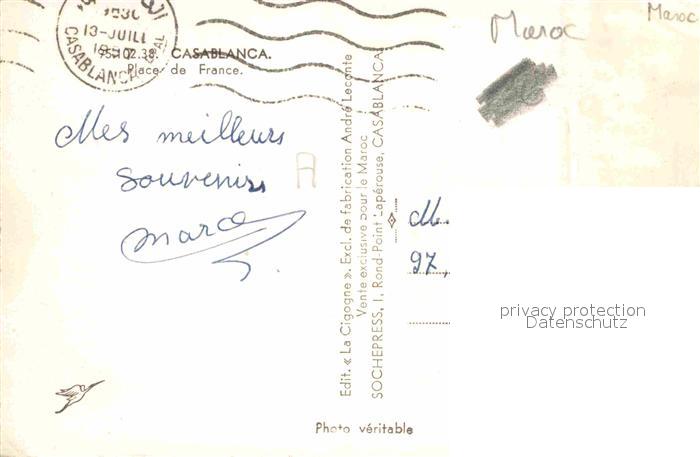 Maroc
Maroc
13-JUILL
CASABLANCA
95-102.38. CASABLANCA.
Place de France.
Mes meilleurs
souvenirs
Marce
A
Edit. « La Cigogne ». Excl. de fabrication André Leconte
Vente exclusive pour le Maroc
SOCHEPRESS, 1, Rond-Point Lapérouse, CASABLANCA
M.
97,
privacy protection
Datenschutz
Photo véritable